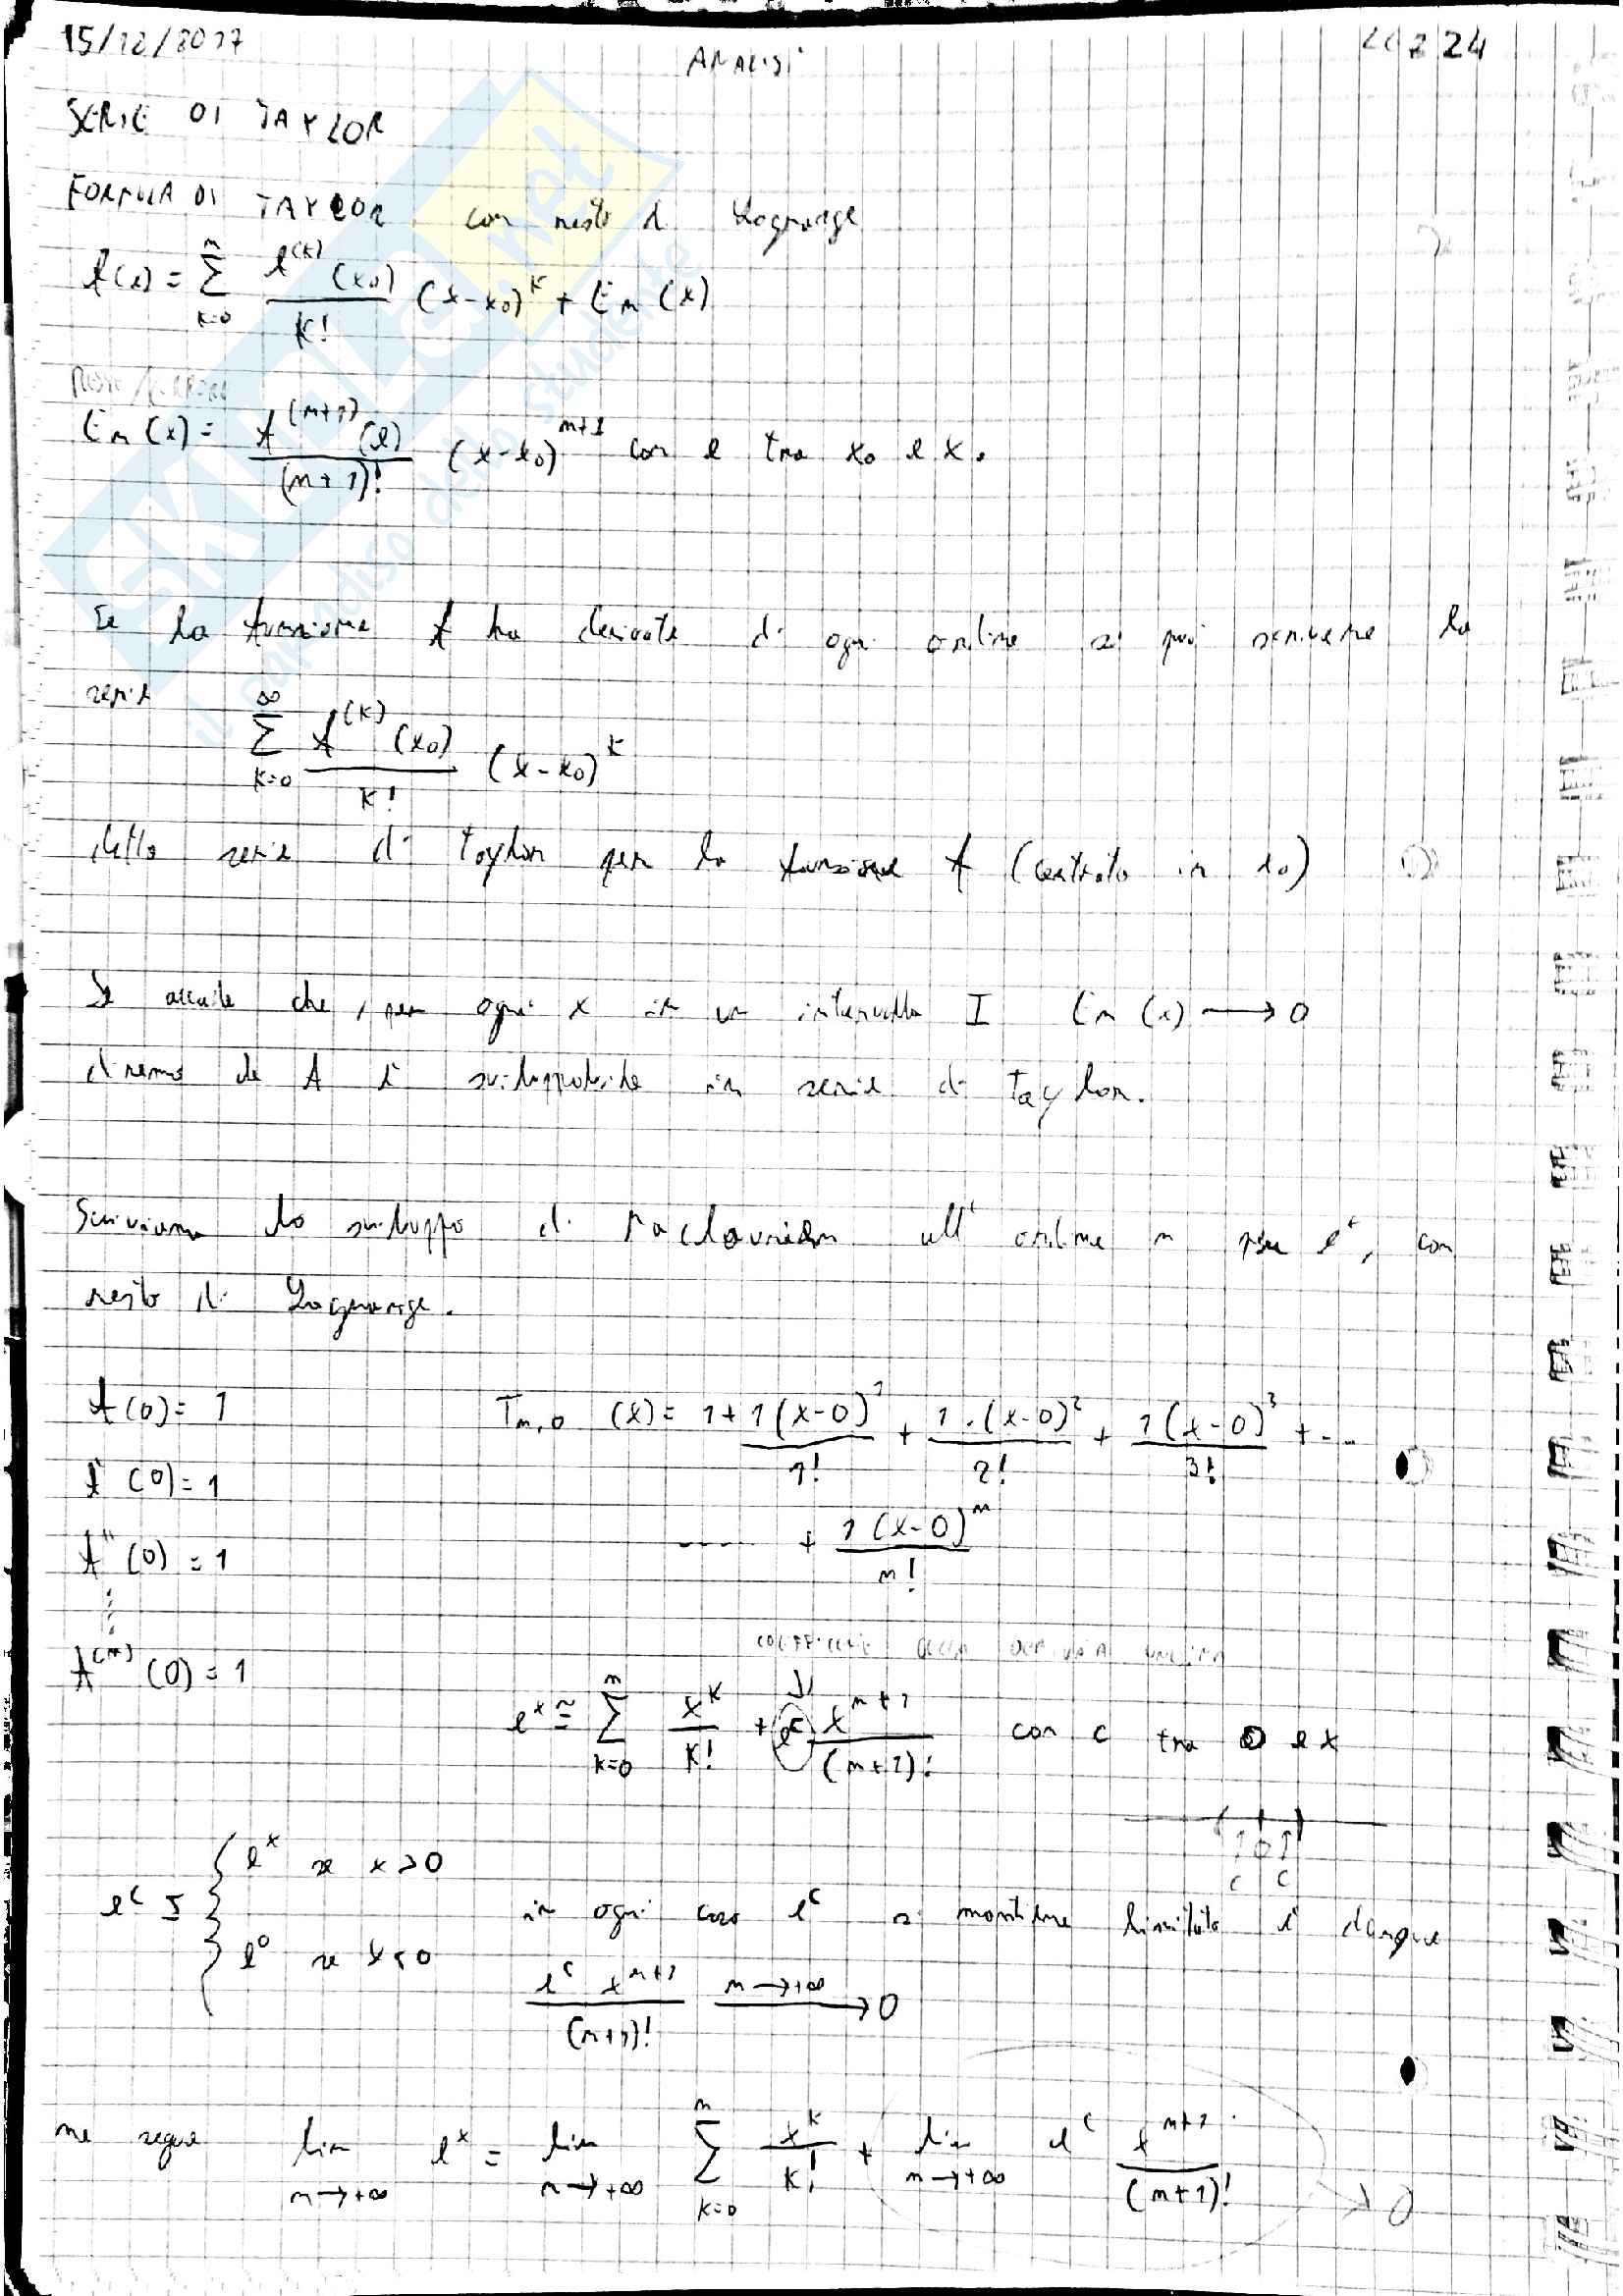 15/12/2017 ANALISI LEZ 24
SERIE DI TAYLOR
FORMULA DI TAYLOR con resto di Lagrange
f(x) = ∑_{k=0}^{n} f^{(k)}(x₀)/k! (x-x₀)^k + E_n(x)
RESTO/ERRORE
E_n(x) = f^{(n+1)}(c)/(n+1)! (x-x₀)^{n+1} con c tra x₀ e x.
Se la funzione f ha derivate di ogni ordine si può scrivere la
serie ∑_{k=0}^{∞} f^{(k)}(x₀)/k! (x-x₀)^k
detta serie di Taylor per la funzione f (centrata in x₀)
Se accade che, per ogni x in un intervallo I E_n(x) → 0
diremo che f è sviluppabile in serie di Taylor.
Scriviamo lo sviluppo di MacLaurin all'ordine n per e^x, con
resto di Lagrange.
f(0) = 1 T_{n,0}(x) = 1 + 1(x-0)^1/1! + 1·(x-0)^2/2! + 1(x-0)^3/3! + ...
f'(0) = 1
..... + 1(x-0)^n/n!
f''(0) = 1
f^{(n)}(0) = 1
COEFFICIENTE DELLA DERIVATA
e^x = ∑_{k=0}^{n} x^k/k! + e^c x^{n+1}/(n+1)! con c tra 0 e x
0
c c
e^c ≤ { e^x se x>0
in ogni caso e^c si mantiene limitato e dunque
e^0 se x<0
e^c x^{n+1}/(n+1)! n→+∞ → 0
ne segue lim_{n→+∞} e^x = lim_{n→+∞} ∑_{k=0}^{n} x^k/k! + lim_{n→+∞} e^c x^{n+1}/(n+1)! → 0
skuola.net
il paradiso dello studente